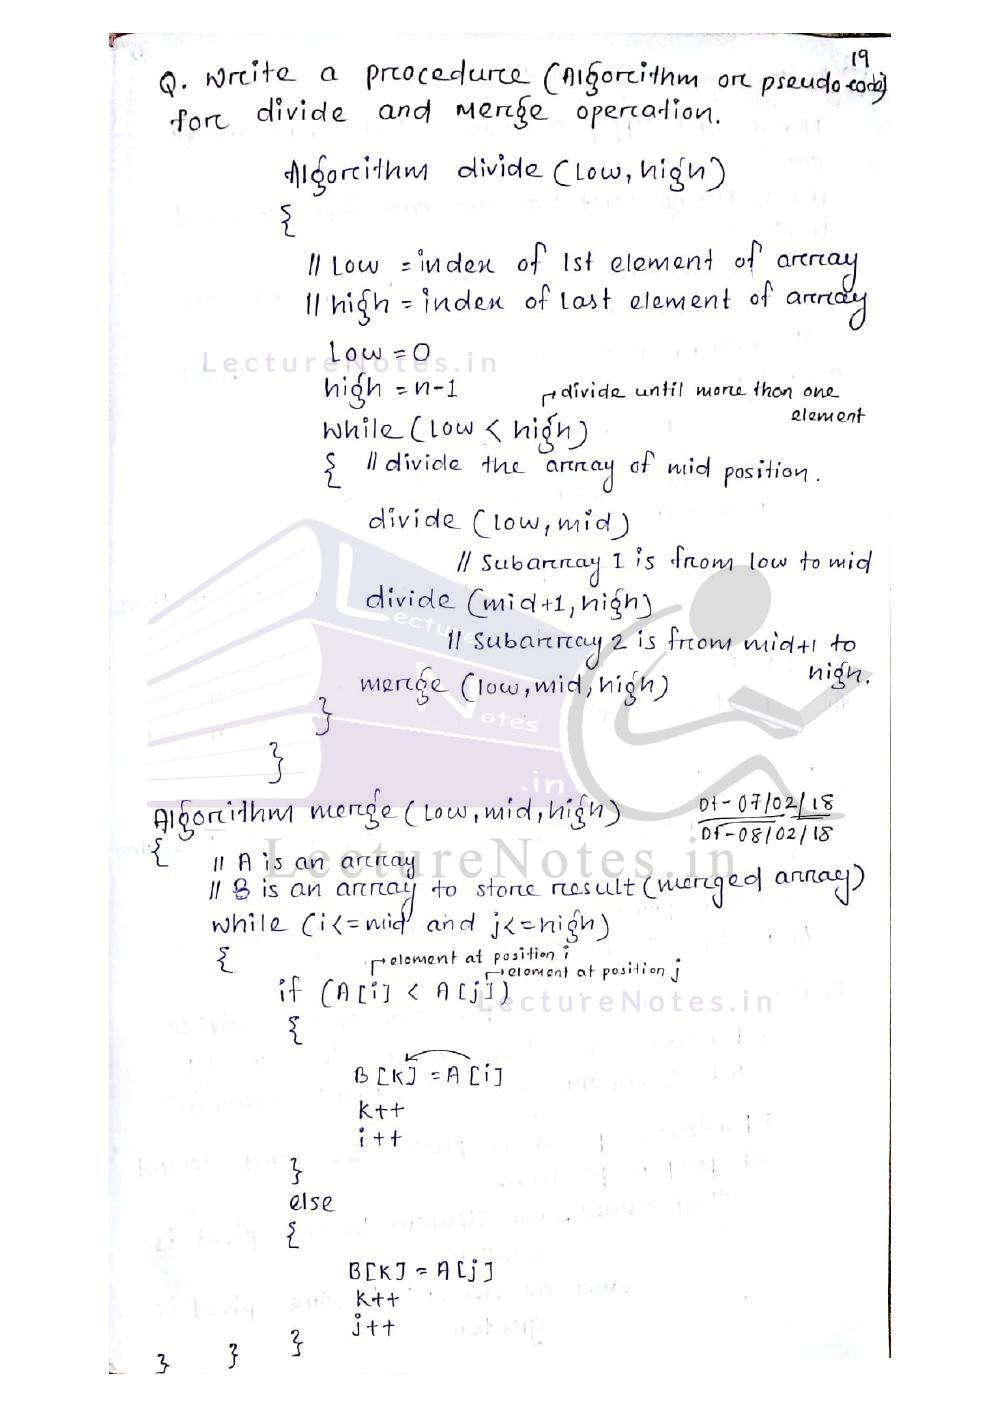 19
Q. Write a procedure (Algorithm or pseudo code)
for divide and Merge operation.
Algorithm divide (Low, high)
{
// Low = index of 1st element of array
// high = index of Last element of array
Low = 0
LectureNotes.in
high = n-1
divide until more than one
element
while (Low < high)
{ // divide the array of mid position.
divide (low, mid)
// Subarray 1 is from low to mid
divide (mid+1, high)
Lecture
// Subarray 2 is from mid+1 to
high.
merge (low, mid, high)
Notes
}
}
.in
Algorithm merge (Low, mid, high)
Dt - 07/02/18
Dt - 08/02/18
{
// A is an array
LectureNotes.in
// B is an array to store result (merged array)
while (i<=mid and j<=high)
{
element at position i
element at position j
if (A[i] < A[j])
LectureNotes.in
{
B[K] = A[i]
K++
i++
}
else
{
B[K] = A[j]
K++
j++
} } }